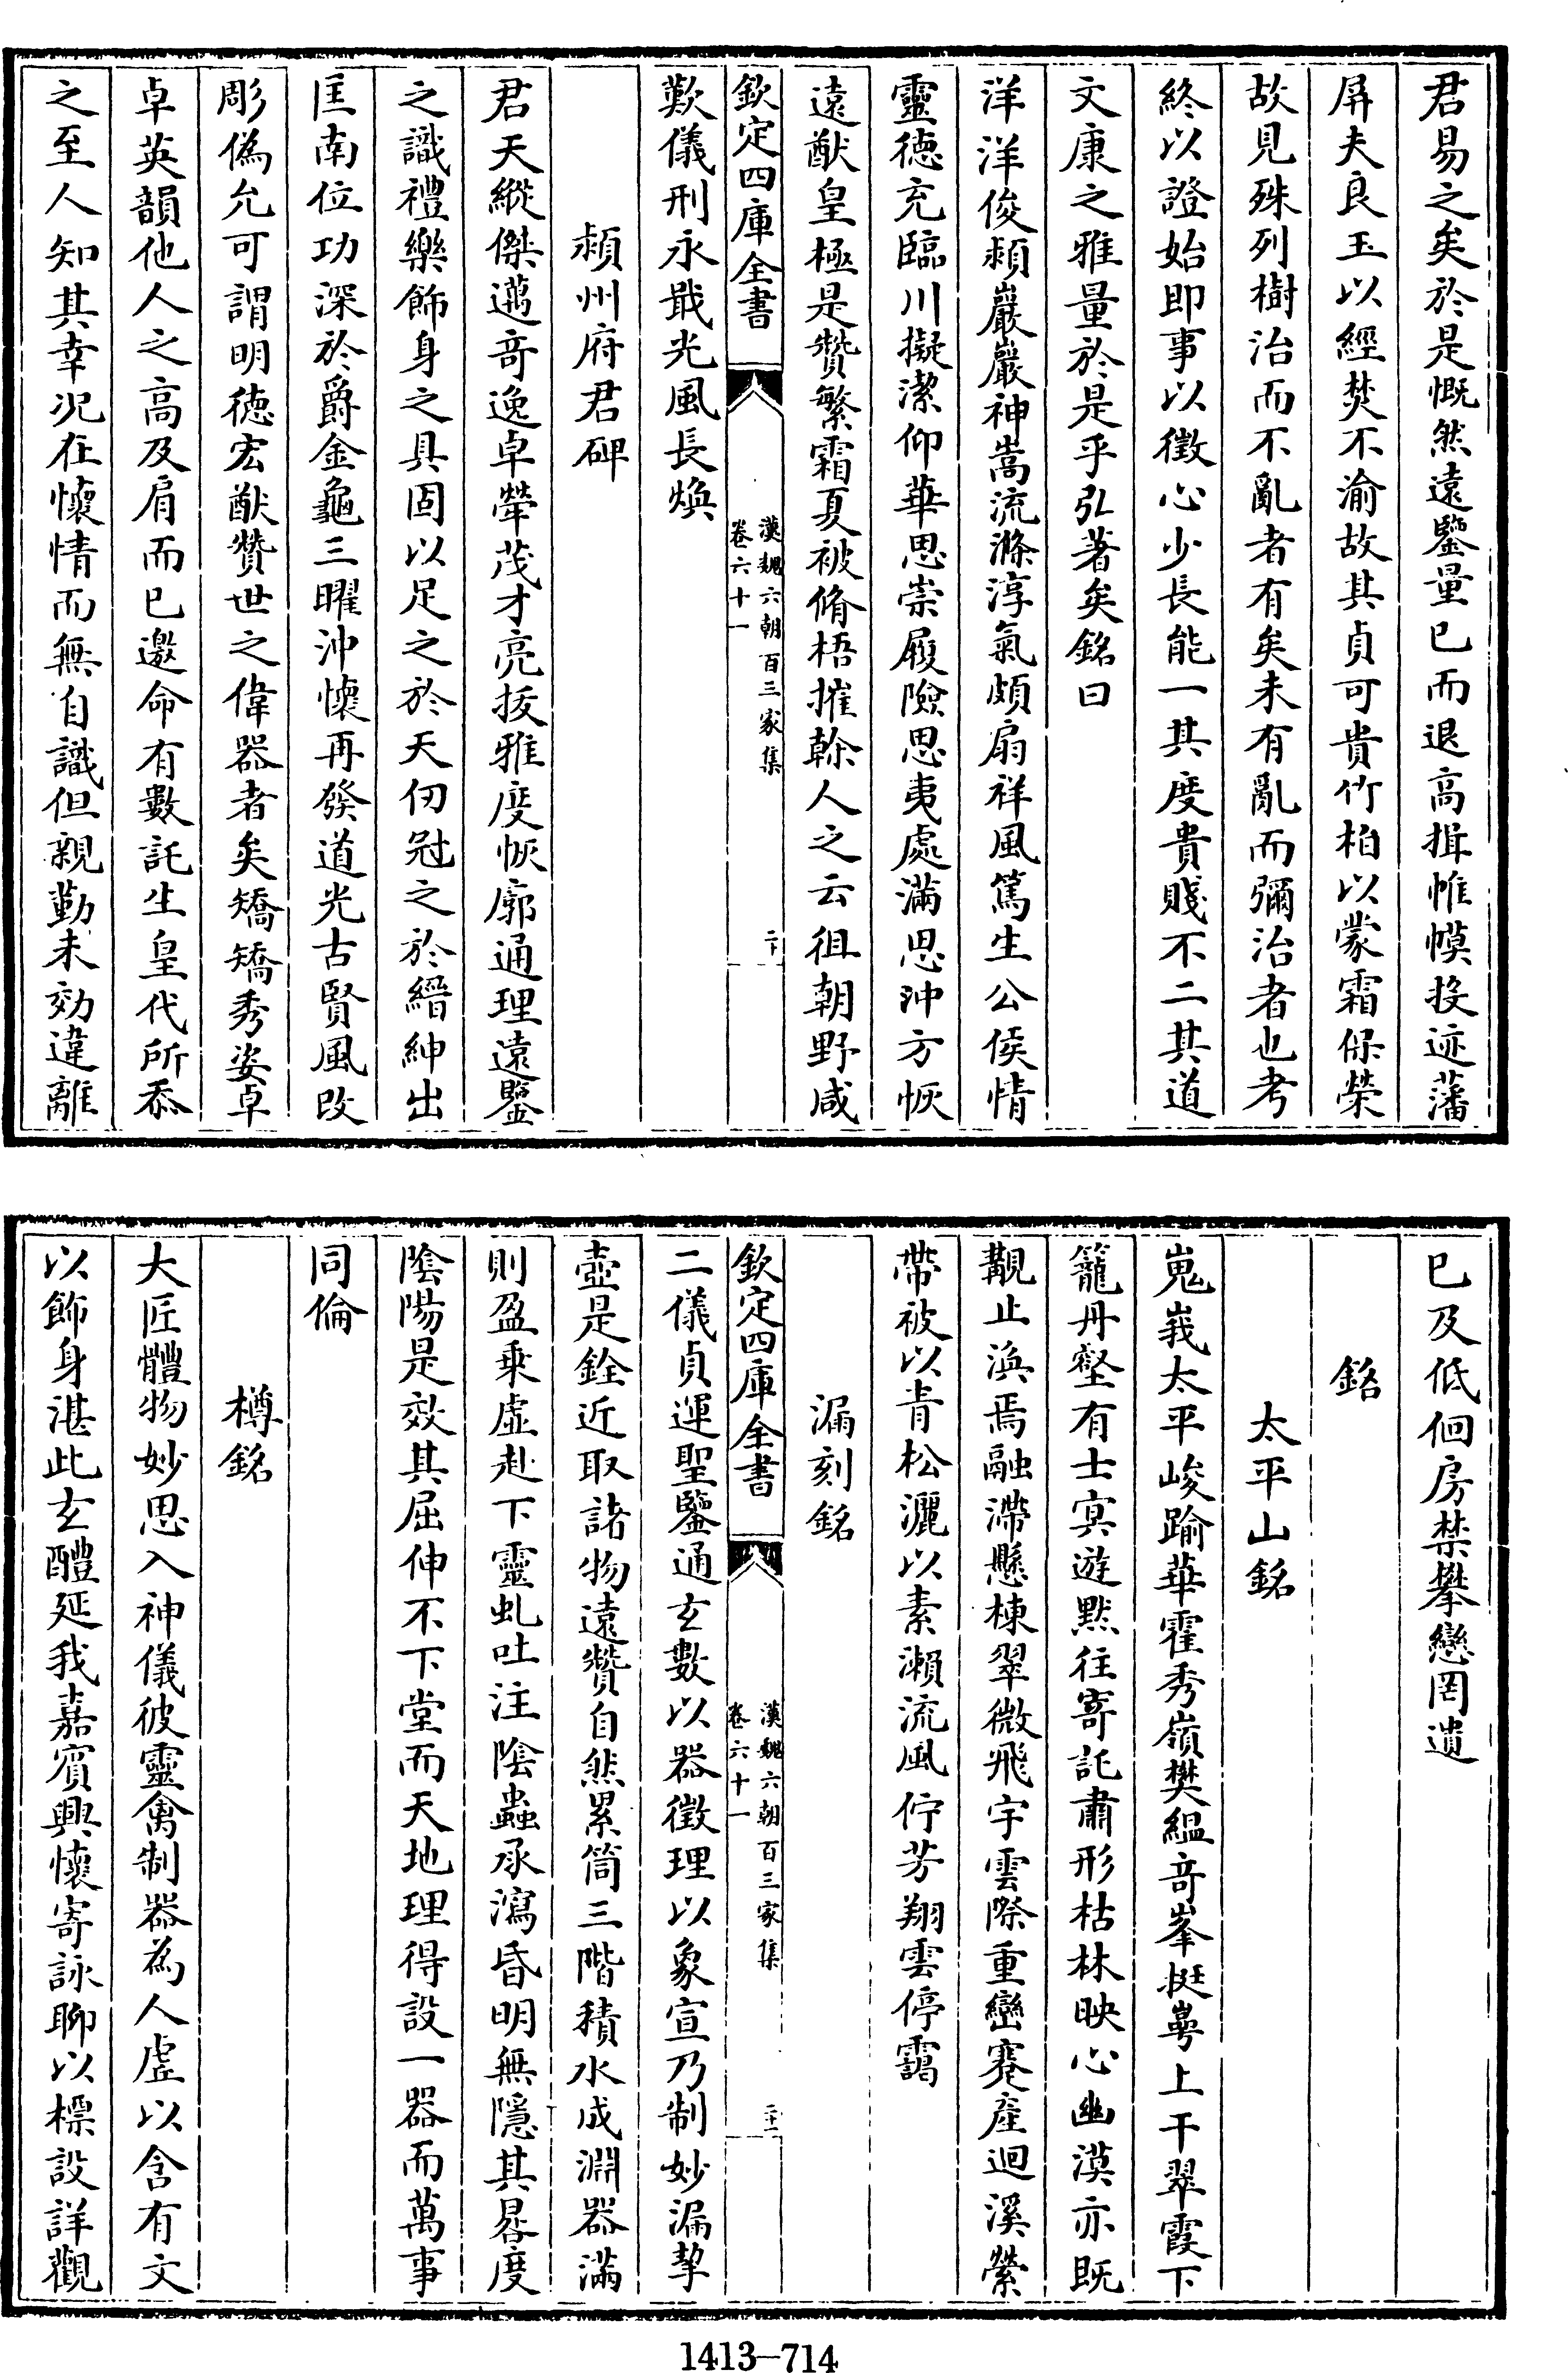 君易之矣於是慨然遠鑒量已而退高揖帷幙投迹藩
屏夫良玉以經焚不渝故其貞可貴竹柏以蒙霜保榮
故見殊列樹治而不亂者有矣未有亂而彌治者也考
終以證始即事以徵心少長能一其度貴賤不二其道
文康之雅量於是乎弘著矣銘曰
洋洋俊潁巖巖神嵩流滌淳氣頗扇祥風篤生公侯情
靈徳充臨川擬潔仰華思崇履險思夷處滿思沖方恢
遠猷皇極是贊繁霜夏被脩梧摧榦人之云徂朝野咸
欽定四庫全書
漢魏六朝百三家集
卷六十一
二十
歎儀刑永戢光風長煥
潁州府君碑
君天縱傑邁竒逸卓犖茂才亮抜雅度恢廓通理遠鑒
之識禮樂飾身之具固以足之於天仞冠之於縉紳出
匡南位功深於爵金龜三曜沖懷再發道光古賢風改
彫偽允可謂明徳宏猷贊世之偉器者矣矯矯秀姿卓
卓英韻他人之高及肩而已邀命有數託生皇代所忝
之至人知其幸况在懷情而無自識但親勤未効違離
已及低佪房禁攀戀罔遺
銘
太平山銘
嵬峩太平峻踰華霍秀嶺樊緼竒峯挺崿上干翠霞下
籠丹壑有士㝠遊黙往寄託肅形枯林映心幽漠亦既
覯止渙焉融滯懸棟翠微飛宇雲際重巒蹇産迴溪縈
帶被以青松灑以素瀨流風佇芳翔雲停靄
漏刻銘
欽定四庫全書
漢魏六朝百三家集
卷六十一
二十一
二儀貞運聖鑒通玄數以器徵理以象宣乃制妙漏挈
壺是銓近取諸物遠贊自然累筒三階積水成淵器滿
則盈乘虛赴下靈虬吐注陰蟲承瀉昏明無隱其晷度
陰陽是效其屈伸不下堂而天地理得設一器而萬事
同倫
樽銘
大匠體物妙思入神儀彼靈禽制器為人虛以含有文
以飾身湛此玄醴延我嘉賓興懷寄詠聊以標設詳觀
1413—714